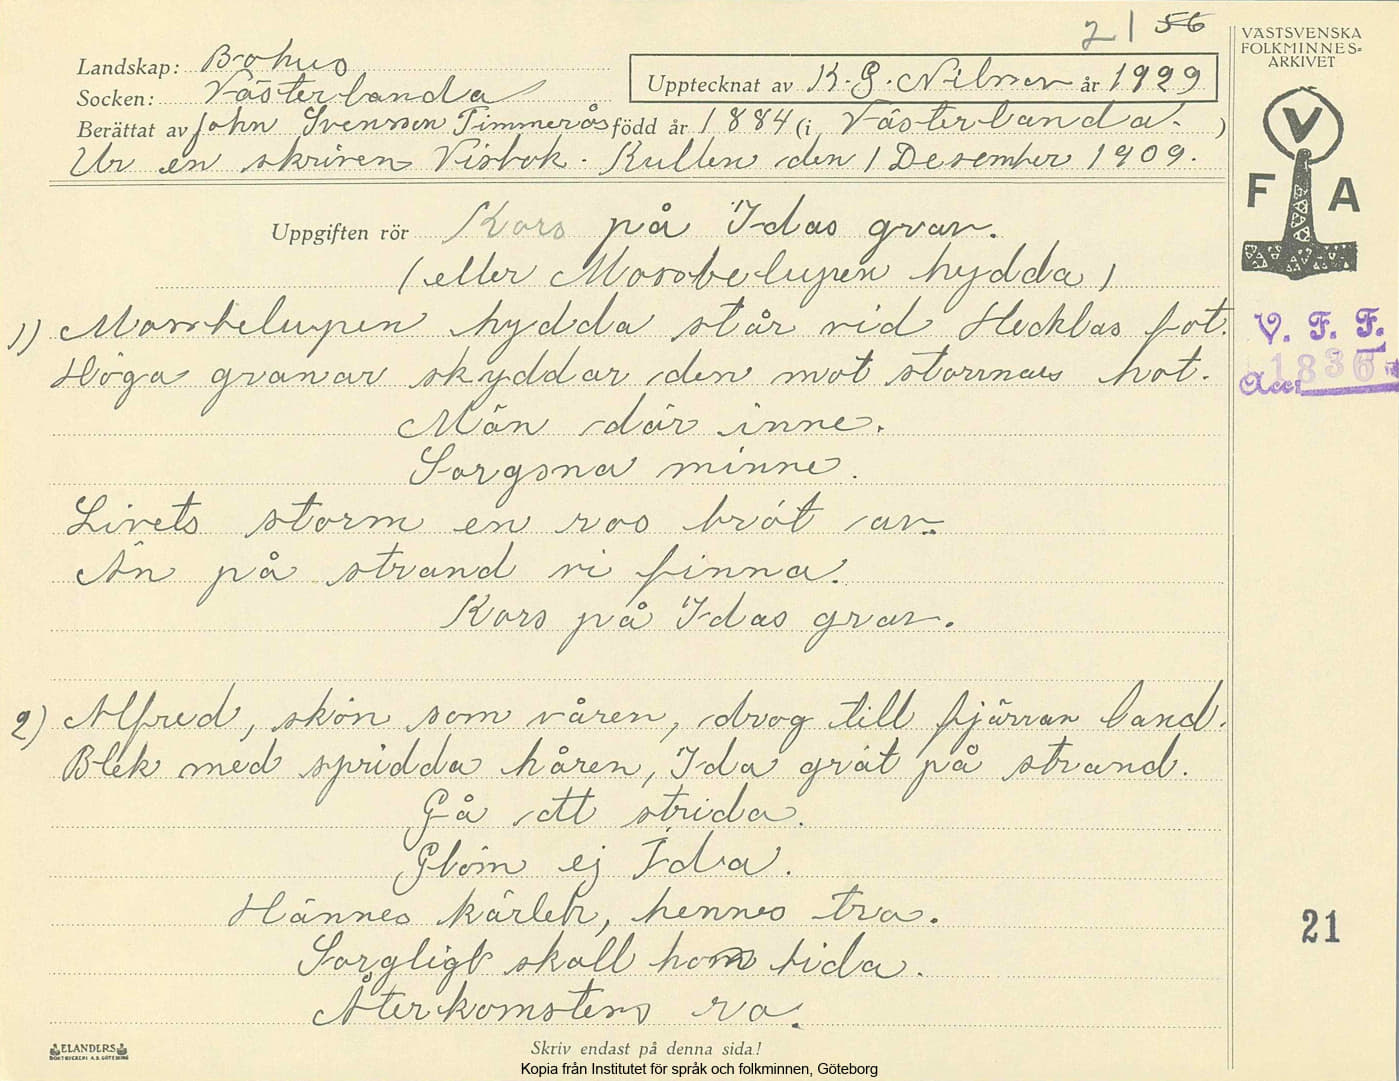 2 | 56
VÄSTSVENSKA
FOLKMINNES=
ARKIVET
Landskap: Bohus
Socken: Västerlanda
Upptecknat av K. G. Nilsson år 1929
Berättat av John Svensson Timmerås född år 1884 (i Västerlanda. )
Ur en skriven Visbok. Kullen den 1 Desember 1909.
V
F A
Uppgiften rör Kors på Idas grav.
( eller Mossbelupen hydda )
V. F. F.
Acc. 1836
1) Mossbelupen hydda står vid Hecklas fot.
Höga granar skyddar den mot stormars hot.
Män där inne.
Sorgsna minne.
Livets storm en ros bröt av.
Än på strand vi finna.
Kors på Idas grav.
2) Alfred, skön som våren, drog till fjärran land.
Blek med spridda håren, Ida grät på strand.
Gå att strida.
Glöm ej Ida.
Hännes kärlek, hennes tro.
Sorgligt skall hon bida.
Återkomstens ro.
21
ELANDERS
BOKTRYCKERI A.B. GÖTEBORG
Skriv endast på denna sida!
Kopia från Institutet för språk och folkminnen, Göteborg